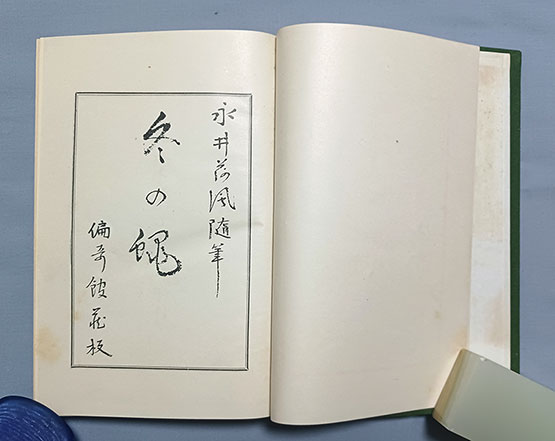 永井荷風随筆
冬の蠅
偏奇館蔵板